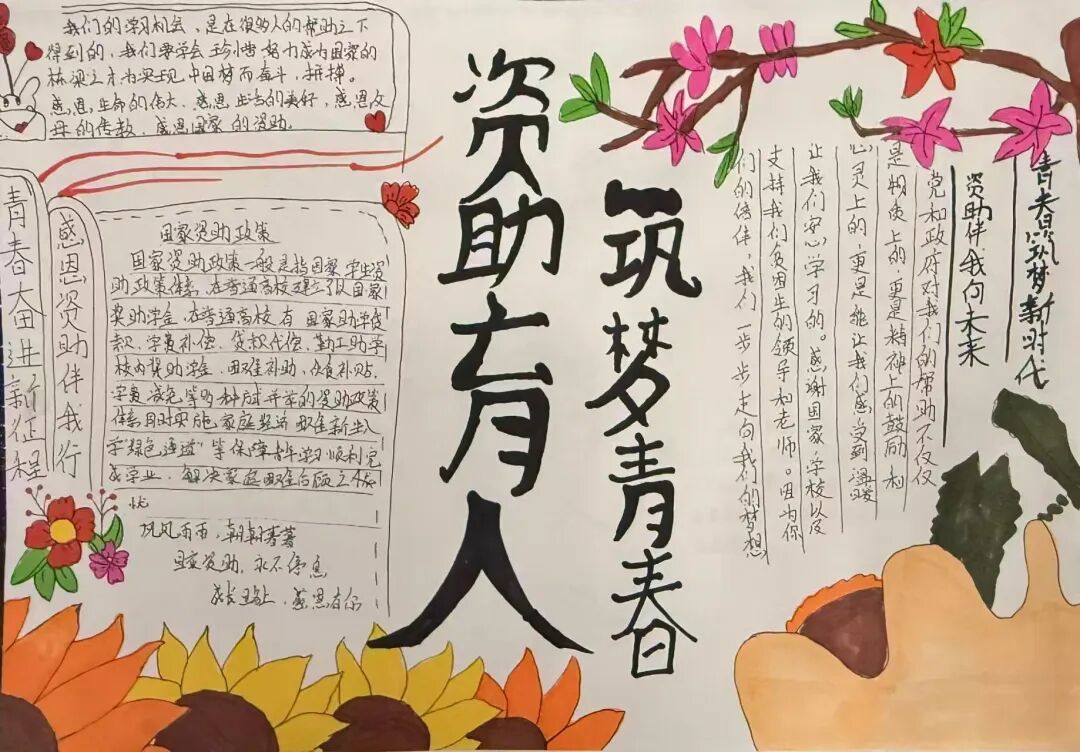 我们的学习机会，是在很多人的帮助之下
得到的，我们要学会珍惜努力成为国家的
栋梁之才为实现中国梦而奋斗，拼搏。
感恩生命的伟大，感恩生活的美好，感恩父
母的传教，感恩国家的资助。
青春奋进新征程
感恩资助伴我行
国家资助政策
国家资助政策一般是指国家学生资
助政策体系，在普通高校建立了以国家
奖助学金，在普通高校有国家助学贷
款、学费补偿、贷款代偿、勤工助学
校内奖助学金、困难补助、伙食补贴、
学费减免等多种形式并存的资助政策
体系同时实施家庭经济困难新生入
学绿色通道"等保障青年学习顺利完
成学业，解决家庭困难后顾之
忧
风风雨雨，朝朝暮暮
国家资助，永不停息
成长路上，感恩有你
资助育人
筑梦青春
青春筑梦新时代
资助伴我向未来
党和政府对我们的帮助不仅仅
是物质上的，更是精神上的鼓励和
心灵上的，更是能让我们感受到温暖
让我们安心学习的。感谢国家，学校以及
支持我们贫困生的领导和老师。因为你
们的陪伴，我们一步步走向我们的梦想